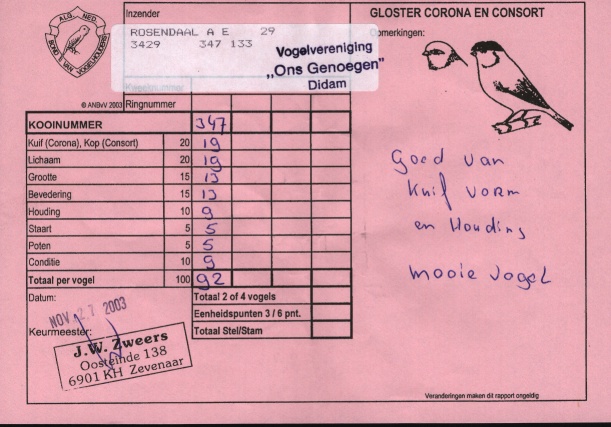 ALG. NED.
BOND V. VAN VOGELHOUDERS
Inzender
ROSENDAAL A E 29
3429 347 133
Vogelvereniging
,,Ons Genoegen"
Didam
© ANBvV 2003 Ringnummer
GLOSTER CORONA EN CONSORT
Opmerkingen:
KOOINUMMER 347
Kuif (Corona), Kop (Consort) 20 19
Lichaam 20 19
Grootte 15 13
Bevedering 15 13
Houding 10 9
Staart 5 5
Poten 5 5
Conditie 10 9
Totaal per vogel 100 92
Datum: NOV. 27 2003
Totaal 2 of 4 vogels
Eenheidspunten 3 / 6 pnt.
Totaal Stel/Stam
Keurmeester:
J.W. Zweers
Oosteinde 138
6901 KH Zevenaar
Goed van
Kuif vorm
en Houding
mooie vogel
Veranderingen maken dit rapport ongeldig